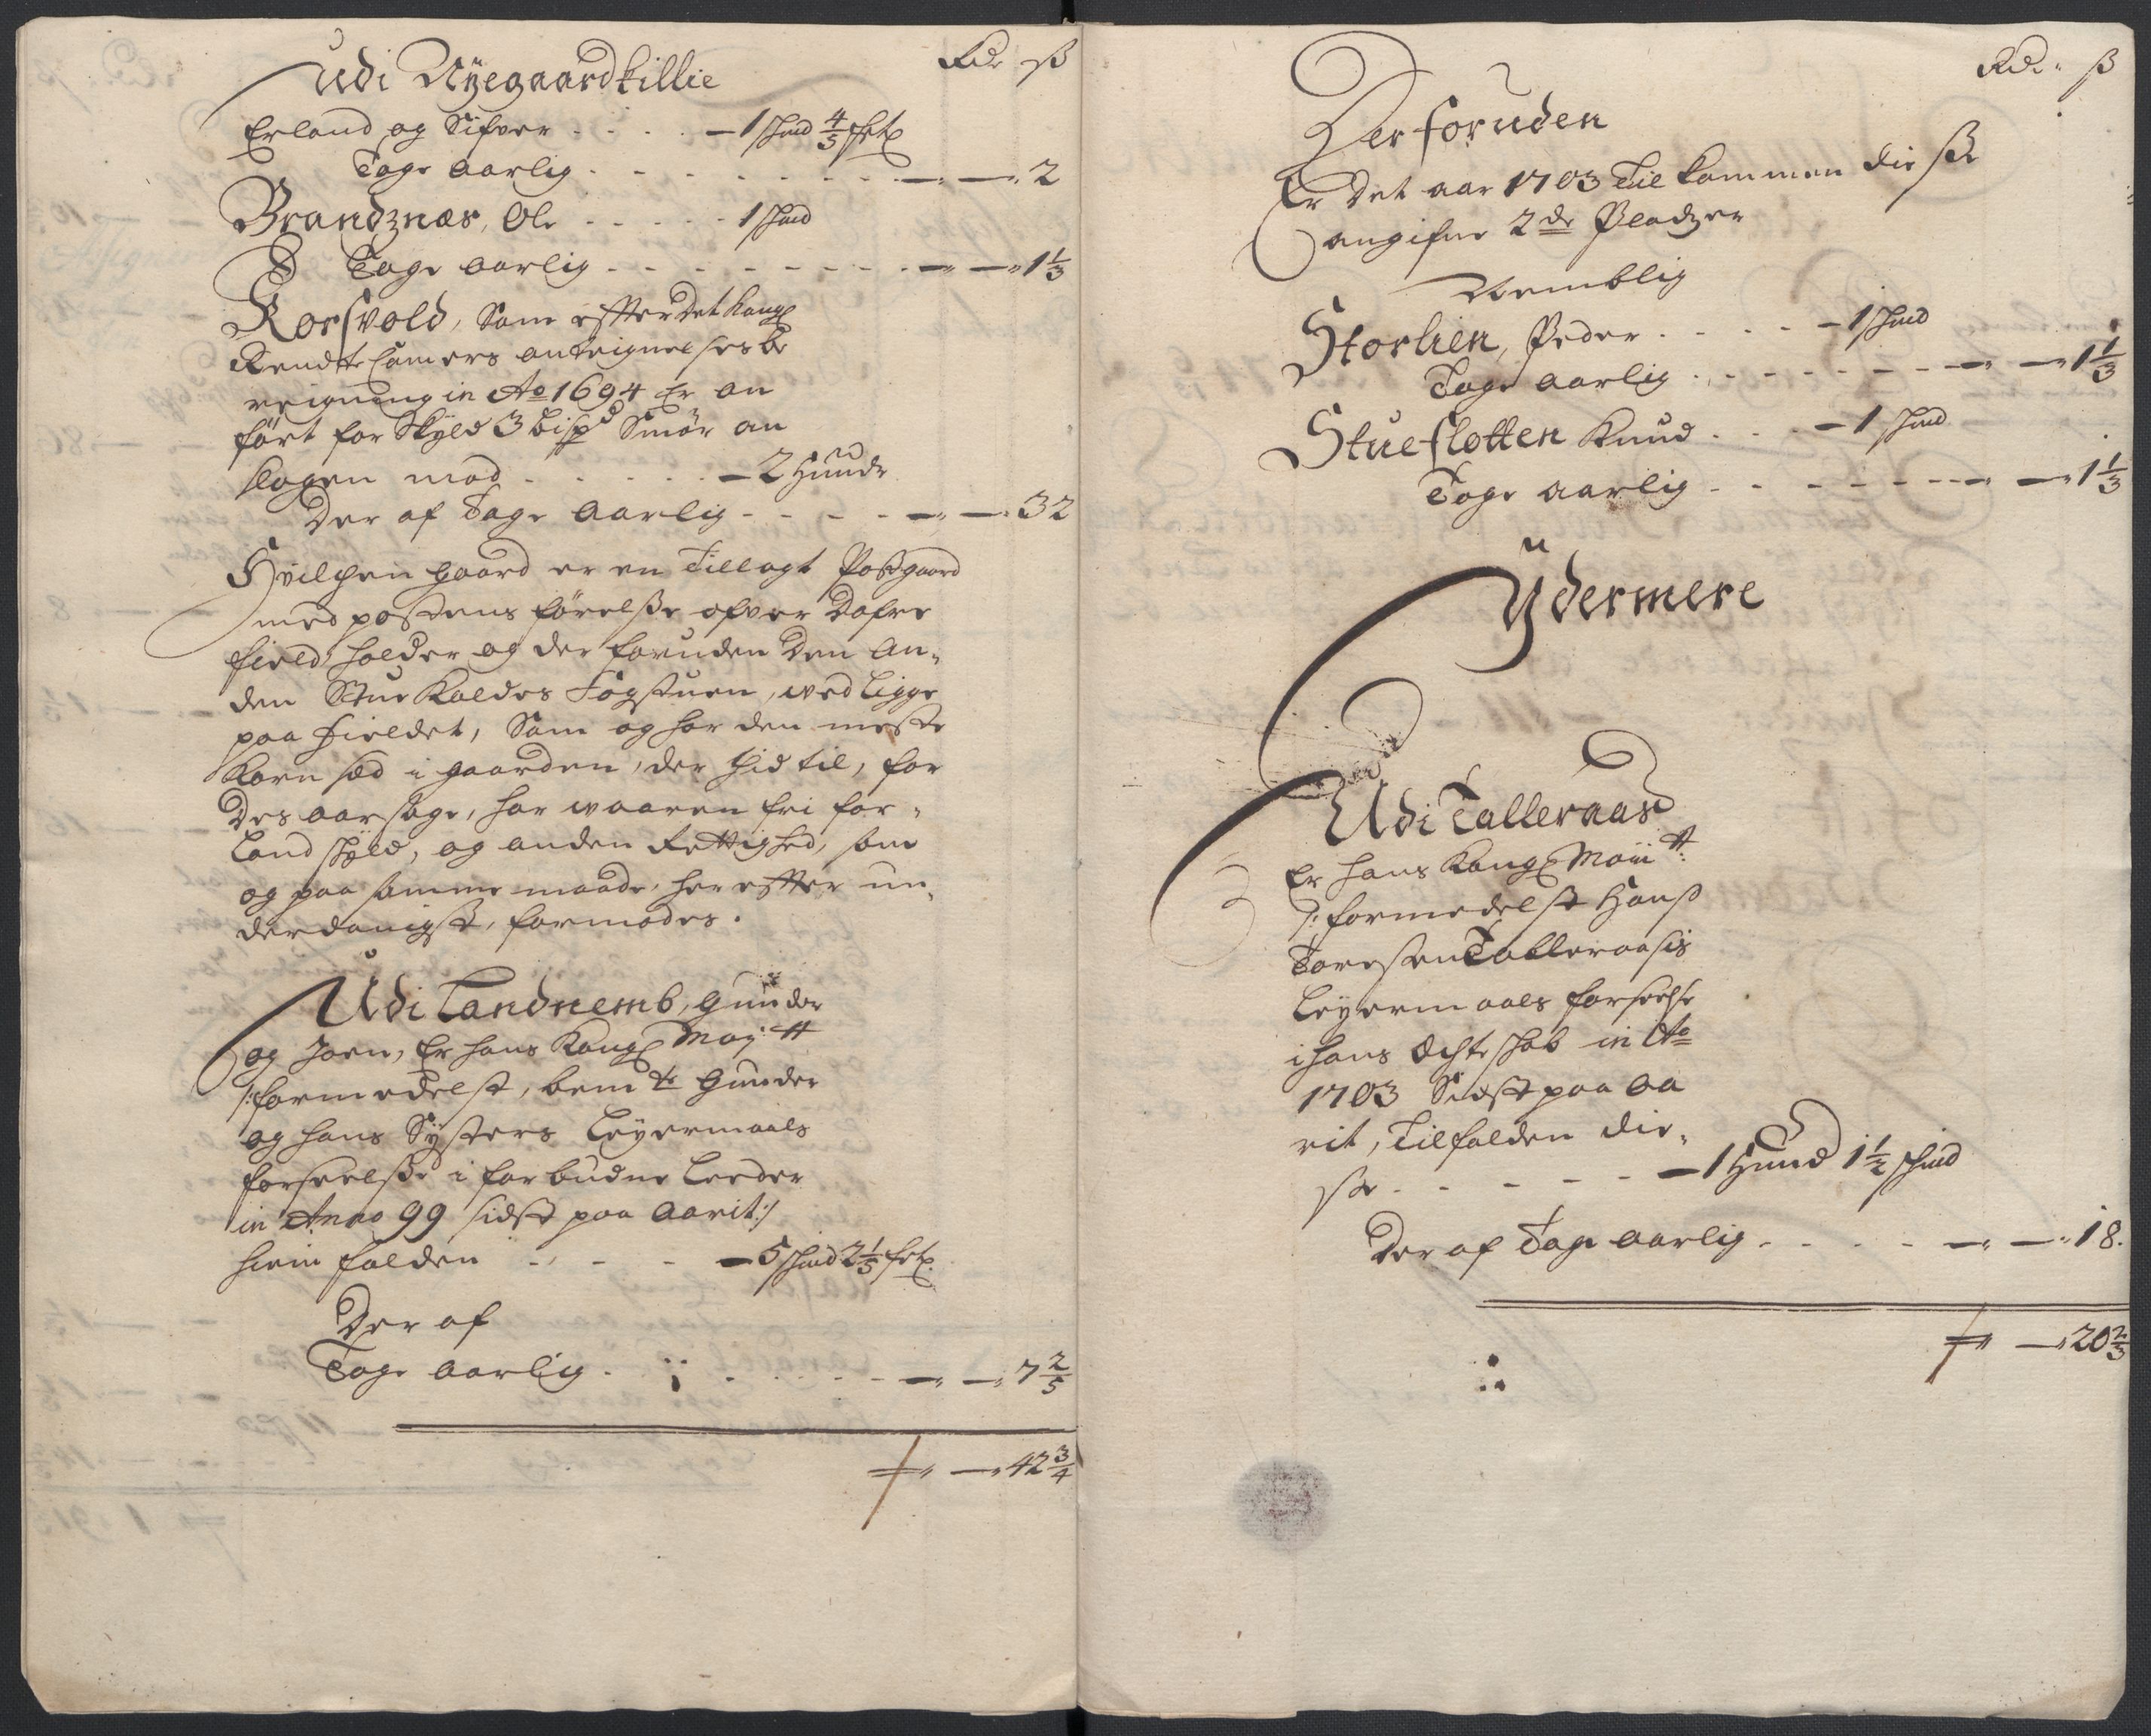 Rdr ß
Udi Nÿegaardkillie
Erland og Sifver - - - - 1 skind 4/5 sk
Tage aarlig - - - - - 2
Brandznæs, Ole - - - - 1 skind
Tage aarlig - - - - - 1 1/3
Korsvold, Som efter Det Kongl
Rendte Camers anteignelses be
reigning in Ao 1694 Er an
ført for Skyld 3 bispd Smør an
slagen mod - - - - 2 Hunde
Der af Tage Aarlig - - - - 32
Hvilchen gaard er en Tillagt Postgaard
med postens førelße ofver Dofre
field holder og der foruden Den An„
den Stue Kaldes Fogstuen, ved ligge
paa fieldet, Som og har den meste
Korn sæd i gaarden, der hid til, for
Des aarsage, har vaaren fri for„
Land skyld, og anden Rettighed, som
og paa samme maade, her efter un„
derdanigst, formodes.
Udi Landnemb, Gunder
og Joen, Er hans Kongl Maj:tt
/:formedelst, bemte Gunder
og hans Sÿsters Leÿermaals
forseelße i forbudne Leeder
in Anno 99 sidst paa Aarit:/
hiem falden - - - 5 skind 2 1/3 sk
Der af
Tage Aarlig - - - - 7 2/5
42 3/4
Rdr ß
Der foruden
Er Det aar 1703 Til kommen diß
angifne 2de Pladzer
Nemblig
Storlien, Peder - - - - 1 skind
Tage aarlig - - - - 1 1/3
Stueflotten Knud - - - 1 skind
Tage aarlig - - - - 1 1/3
Ÿdermere
Udi Talleraas
Er hans Kongl Maiitt:
/: formedelst Hans
Toresten Talleraasis
Leÿermaals forseelse
i hans Ægteskab in Ao
1703 Sidst paa Aa
rit, Tilfalden die„
se - - - - - 1 Hund 1 1/2 skind
Der af Tage aarlig - - - - 18.
20 2/3